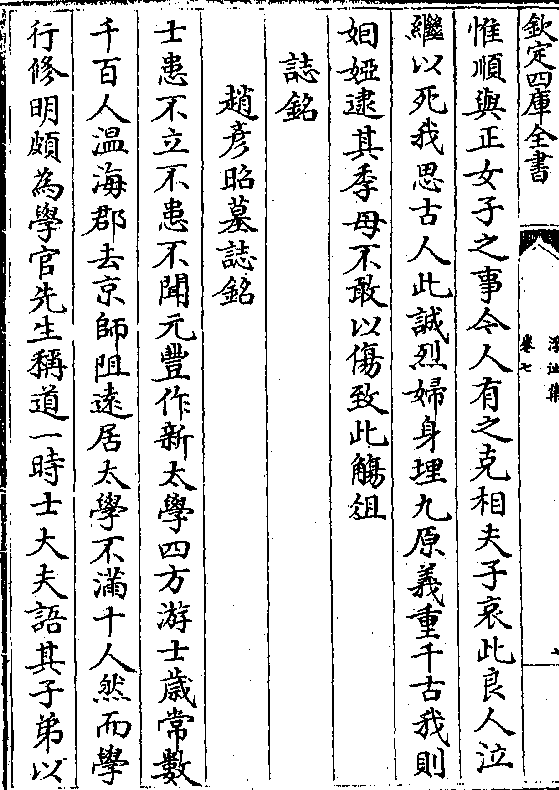 欽定四庫全書
浮沚集
卷七
惟順與正女子之事今人有之克相夫子哀此良人泣
繼以死我思古人此誠烈婦身埋九原義重千古我則
姻婭逮其季母不敢以傷致此觴俎
誌銘
趙彦昭墓誌銘
士患不立不患不聞元豐作新太學四方游士歳常數
千百人温海郡去京師阻遠居太學不滿十人然而學
行修明頗為學官先生稱道一時士大夫語其子弟以